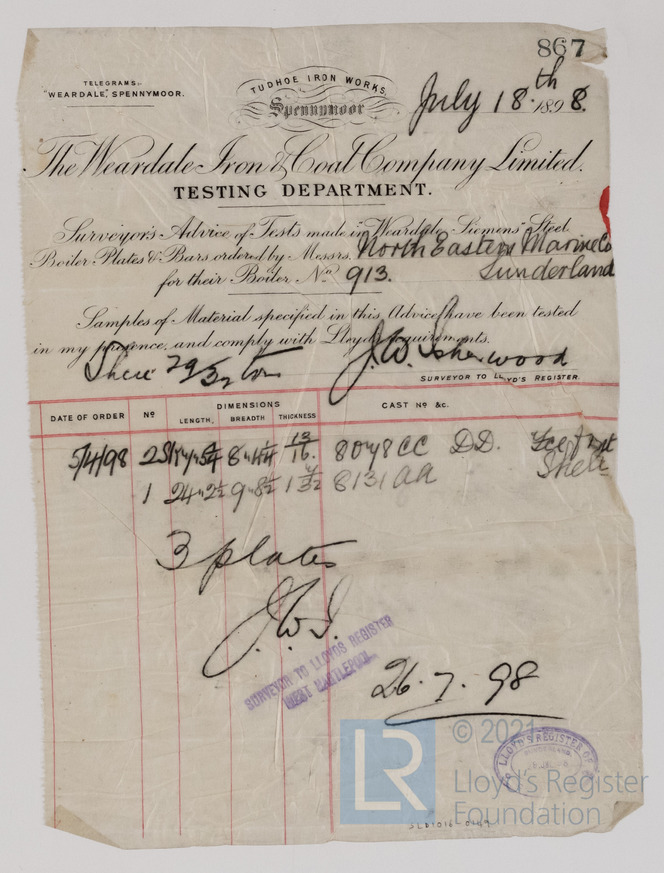 867
TELEGRAMS:-
"WEARDALE," SPENNYMOOR.
TUDHOE IRON WORKS,
Spennymoor
July 18th 1898.
The Weardale Iron & Coal Company Limited.
TESTING DEPARTMENT.
Surveyor's Advice of Tests made in "Weardale-Siemens" Steel
Boiler Plates & Bars ordered by Messrs. North Eastern Marine Co
for their Boiler No. 913. Sunderland
Samples of Material specified in this Advice have been tested
in my presence, and comply with Lloyd's requirements.
J. W. Isherwood
SURVEYOR TO LLOYD'S REGISTER
DATE OF ORDER No DIMENSIONS CAST No &c.
LENGTH, BREADTH THICKNESS
5/4/98 2 13/16 DD.
1 24"2½ 9"8½ 8131 Shell
3 plates
J.W.I.
SURVEYOR TO LLOYDS REGISTER
WEST HARTLEPOOL
26.7.98
LLOYD'S REGISTER OF
LR
© 2021
Lloyd's Register
Foundation